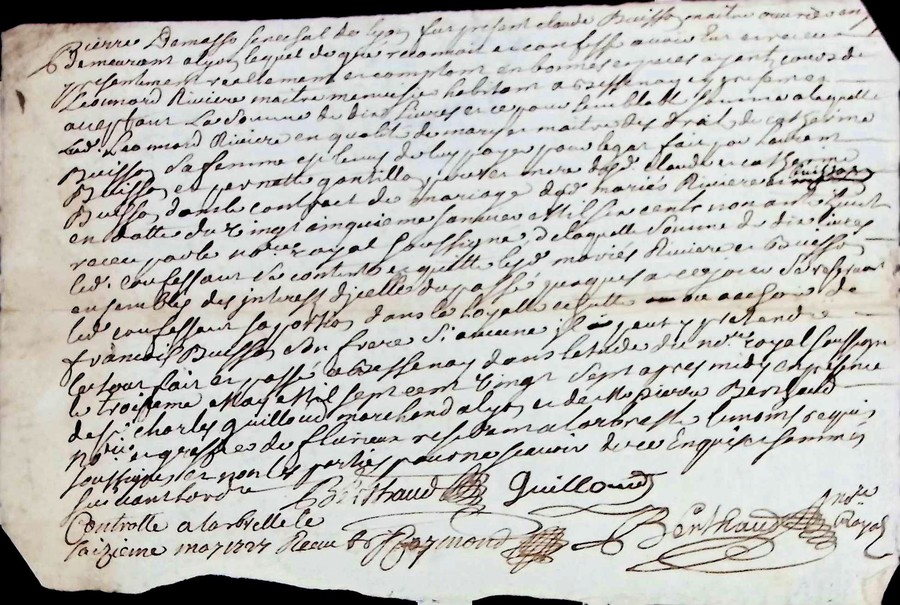 Pierre Demasso senechal de lyon fut present claude Buisson maitre ouvrier en
Demeurant a lyon lequel de gre reconnoit et confesse avoir Eu et receu
presentement reellement et comptant en bonnes especes ayant cours de
Leonnard Riviere maitre menusier habitant a Bessenay en presence
acceptant La somme de dix livres et ce pour semblable somme a laquelle
Led. Leonnard Riviere en qualité de mary et maitre des droits de catherine
Buisson sa femme est tenus de luy payer pour legat fait par Laurent
Buisson et pernette gantillon, pere et mere desd. claude et catherine
Buisson dans le contract de mariage desd. mariés Riviere et Buisson
en datte du vingt cinquieme janvier Mil six cents nonante huit
receu par le no.re royal soussigné, de laquelle somme de dix livres
led. confessant se contente et quitte lesd. mariés Riviere et Buisson
ensembles des interests d'icelle du passé jusques a ce jour se reservant
led. confessant sa portion dans la hoyrie de
francois Buisson son frere si aucune il y peut pretendre
Ce tout fait et passé a Bessenay dans l'etude du no.re royal soussigné
le troisieme May Mil sept cent vingt sept apres midy en presence
de s.r charles quilloud marchand a lyon et de M.e pierre Berthaud
No.re et greffier de fleurieux residant a larbresle temoins requis
soussignés et non les parties pour ne scavoir de ce Enquises et sommés
suivant l'ordre Berthaud Quilloud
Controllé a larbresle le Berthaud no.re
saizieme may 1727 Receu Raymond Royal